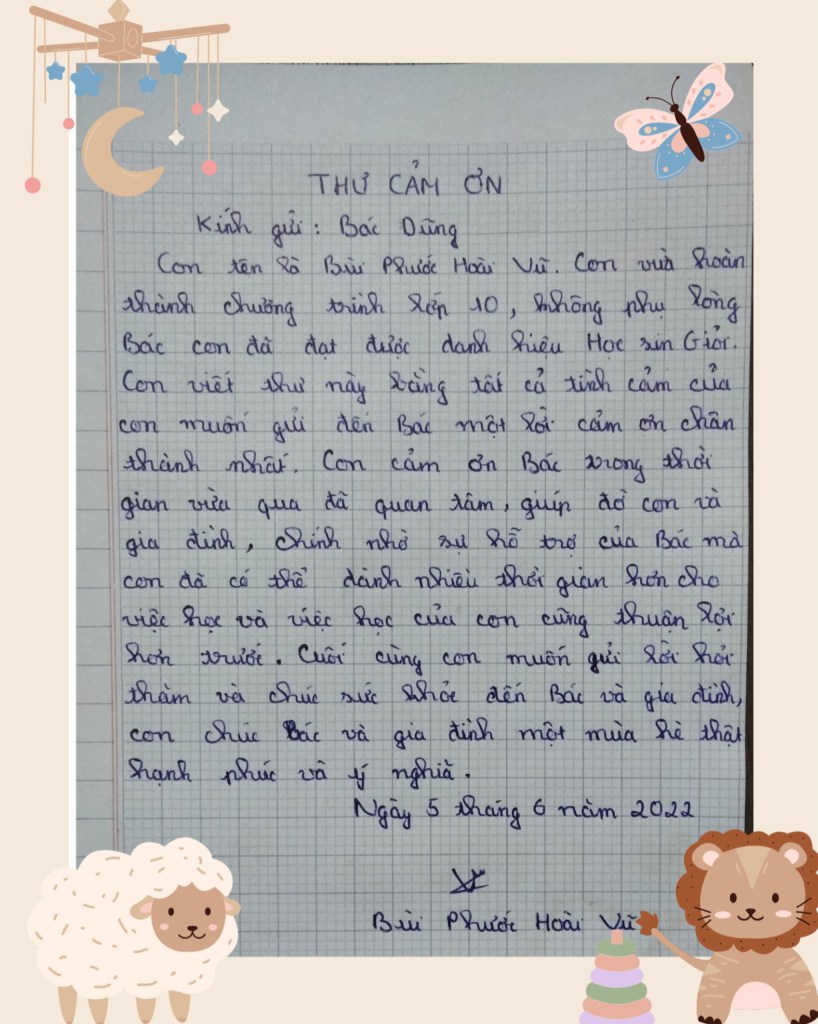 THƯ CẢM ƠN
Kính gửi : Bác Dũng
Con tên là Bùi Phước Hoài Vũ. Con vừa hoàn
thành chương trình lớp 10, không phụ lòng
Bác con đã đạt được danh hiệu Học sin Giỏi.
Con viết thư này bằng tất cả tình cảm của
con muốn gửi đến Bác một lời cảm ơn chân
thành nhất. Con cảm ơn Bác trong thời
gian vừa qua đã quan tâm, giúp đỡ con và
gia đình, chính nhờ sự hỗ trợ của Bác mà
con đã có thể dành nhiều thời gian hơn cho
việc học và việc học của con cũng thuận lợi
hơn trước. Cuối cùng con muốn gửi lời hỏi
thăm và chúc sức khỏe đến Bác và gia đình,
con chúc Bác và gia đình một mùa hè thật
hạnh phúc và ý nghĩa.
Ngày 5 tháng 6 năm 2022
Bùi Phước Hoài Vũ